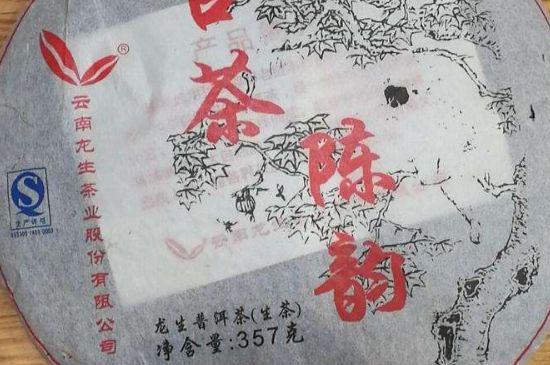 茶
陈韵
®
云南龙生茶业股份有限公司
生产许可
龙生普洱茶(生茶)
净含量:357克
云南龙生